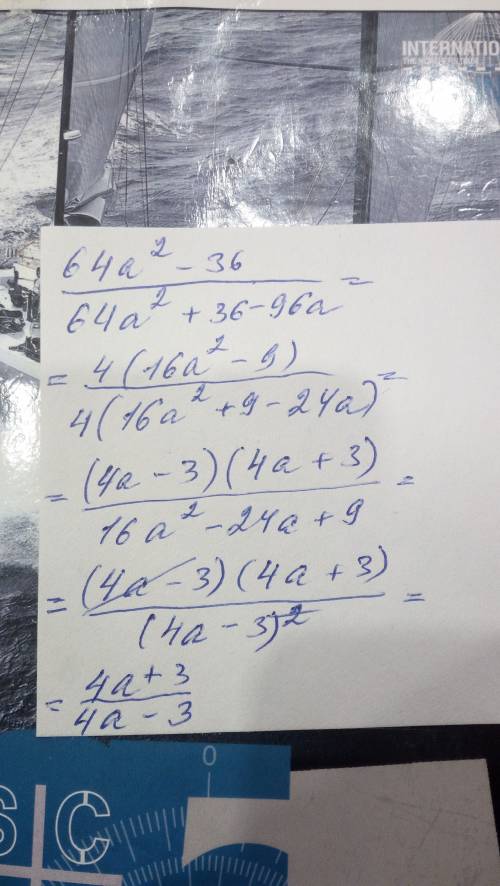 INTERNATIO
64a² - 36 / 64a² + 36 - 96a =
= 4(16a² - 9) / 4(16a² + 9 - 24a) =
= (4a - 3)(4a + 3) / 16a² - 24a + 9 =
= (4a - 3)(4a + 3) / (4a - 3)² =
= 4a + 3 / 4a - 3
0
SC
5